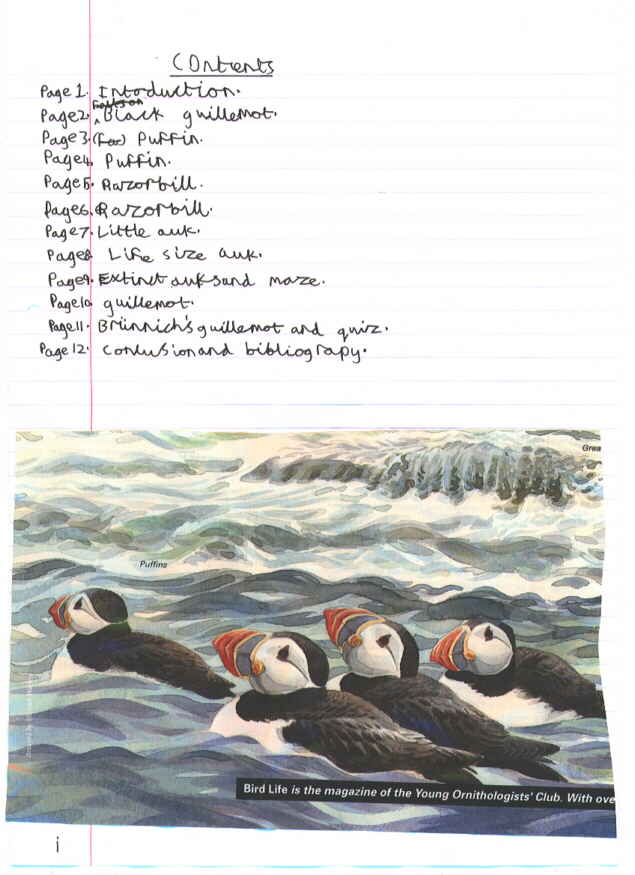 Contents
Page 1. Intoduction.
Page 2. Black guillemot.
Page 3. (Fac) Puffin.
Page 4. Puffin.
Page 5. Razorbill.
Page 6. Razorbill.
Page 7. Little auk.
Page 8 Life size auk.
Page 9. Extinct auks and maze.
Page 10 guillemot.
Page 11. Brünnich's guillemot and quiz.
Page 12. Conlusion and bibliograpy.
Grea
Puffins
Bird Life is the magazine of the Young Ornithologists' Club. With ove
i